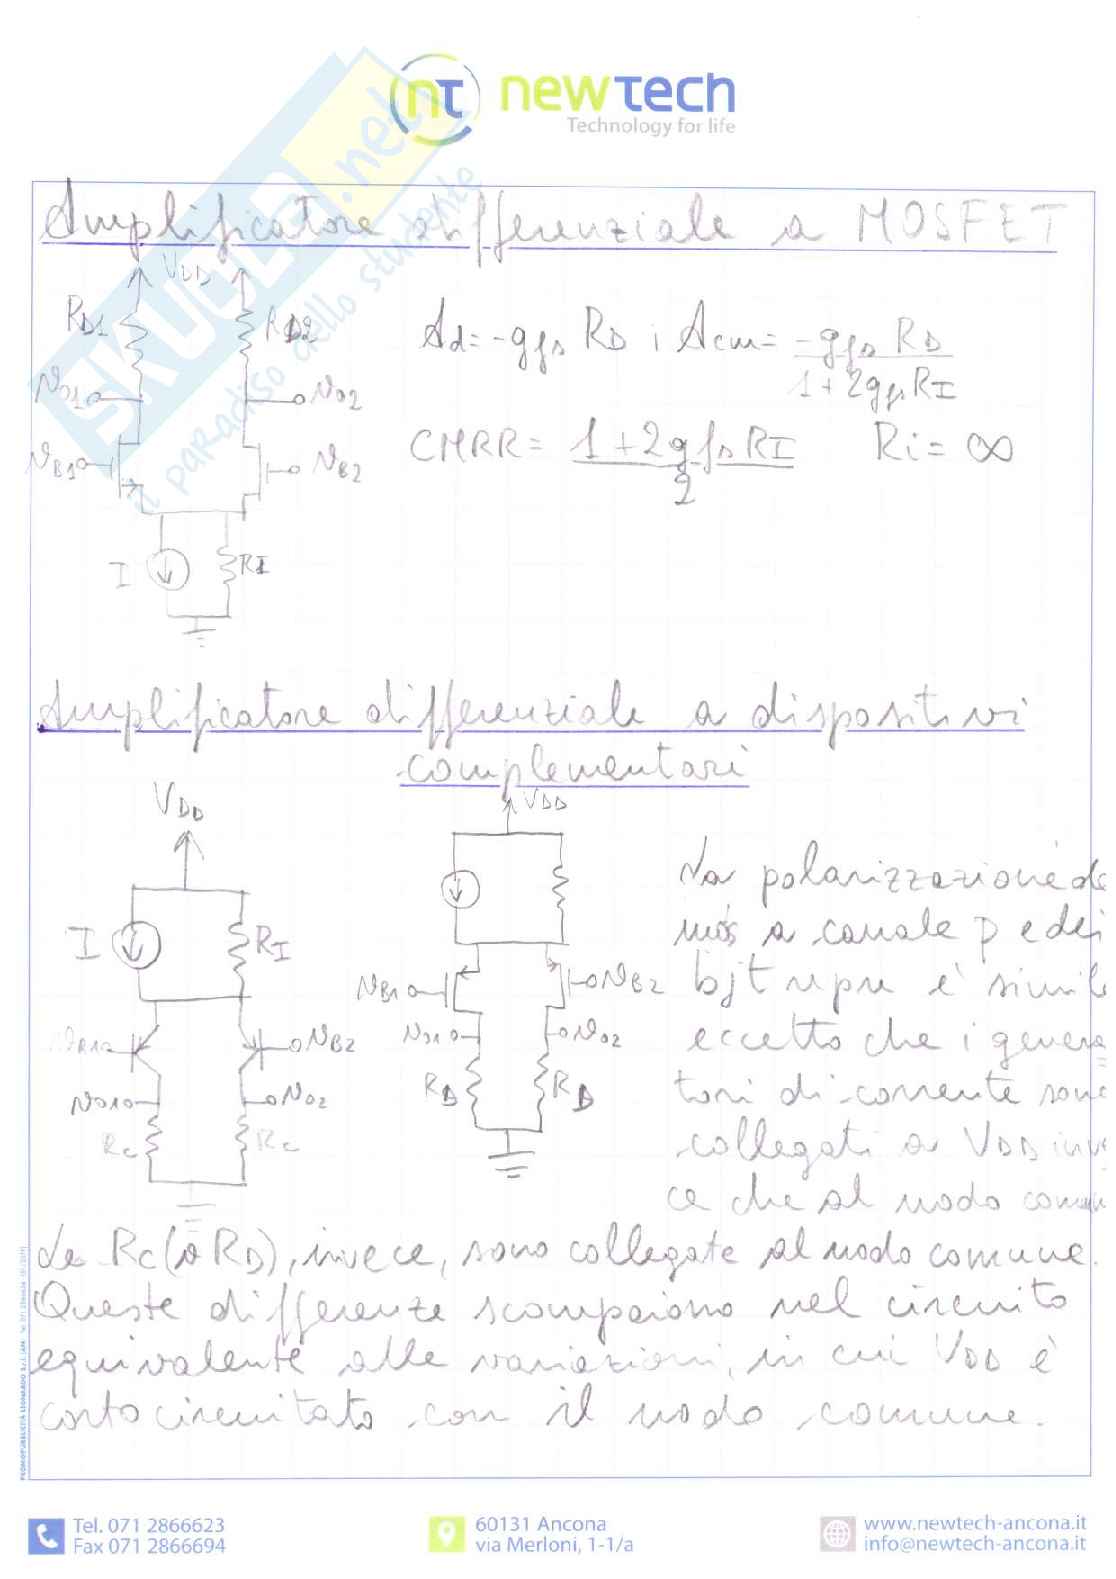 nt newtech
Technology for life
SKUOLA.net
il paradiso dello studente
Amplificatore differenziale a MOSFET
VDD
RD1 RD2
vO1 vO2
vB1 vB2
I RI
Ad=-gfs RD ; Acm= -gfs RD / 1+2gfsRI
CMRR= 1+2gfsRI / 2 Ri= ∞
Amplificatore differenziale a dispositivi
complementari
VDD
I RI
vB1 vB2
vO1 vO2
RC RC
VDD
vB1 vB2
vO1 vO2
RD RD
La polarizzazione de
mos a canale p e dei
bjt npn è simile
eccetto che i genera
tori di corrente sono
collegati a VDD inve
ce che al nodo comun
Le RC (o RD), invece, sono collegate al nodo comune.
Queste differenze scompaiono nel circuito
equivalente alle variazioni, in cui VDD è
cortocircuitato con il nodo comune.
Tel. 071 2866623
Fax 071 2866694
60131 Ancona
via Merloni, 1-1/a
www.newtech-ancona.it
info@newtech-ancona.it